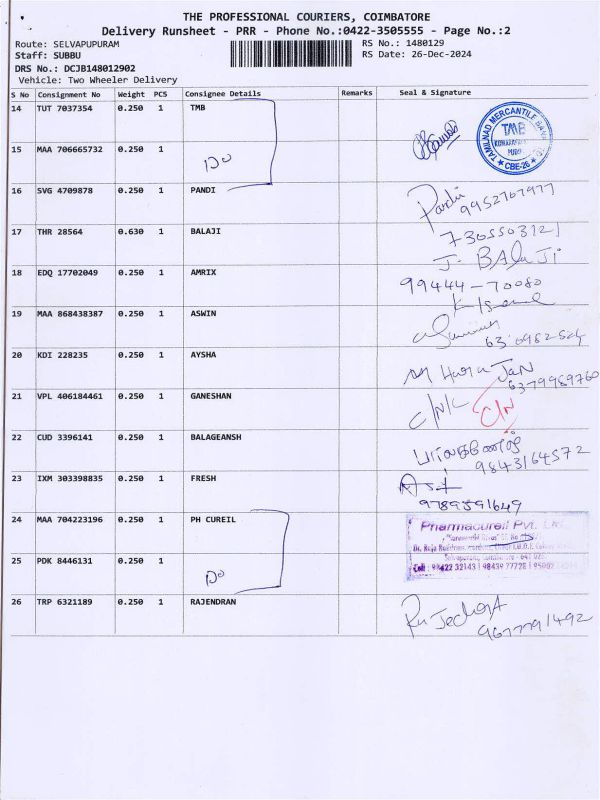 THE PROFESSIONAL COURIERS, COIMBATORE
Delivery Runsheet - PRR - Phone No.:0422-3505555 - Page No.:2
Route: SELVAPUPURAM RS No.: 1480129
Staff: SUBBU RS Date: 26-Dec-2024
DRS No.: DCJB148012902
Vehicle: Two Wheeler Delivery
S No Consignment No Weight PCS Consignee Details Remarks Seal & Signature
14 TUT 7037354 0.250 1 TMB
TAMILNAD MERCANTILE BANK
TMB
CBE-26
15 MAA 706665732 0.250 1 Do
16 SVG 4709878 0.250 1 PANDI Pandi
9952707977
17 THR 28564 0.630 1 BALAJI 7305503121
J. BALAJI
18 EDQ 17702049 0.250 1 AMRIX 99444-70080
19 MAA 868438387 0.250 1 ASWIN
20 KDI 228235 0.250 1 AYSHA
6379989760
21 VPL 406184461 0.250 1 GANESHAN C/N/C C/N
22 CUD 3396141 0.250 1 BALAGEANSH
9843164572
23 IXM 303398835 0.250 1 FRESH
9789591649
24 MAA 704223196 0.250 1 PH CUREIL Pharmacureil Pvt. Ltd.
25 PDK 8446131 0.250 1 Do
26 TRP 6321189 0.250 1 RAJENDRAN
9677791492